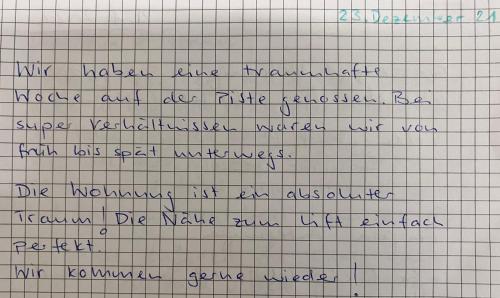 23. Dezember 21
Wir haben eine traumhafte
Woche auf der Piste genossen. Bei
super Verhältnissen waren wir von
früh bis spät unterwegs.
Die Wohnung ist ein absoluter
Traum! Die Nähe zum Lift einfach
perfekt.
Wir kommen gerne wieder!